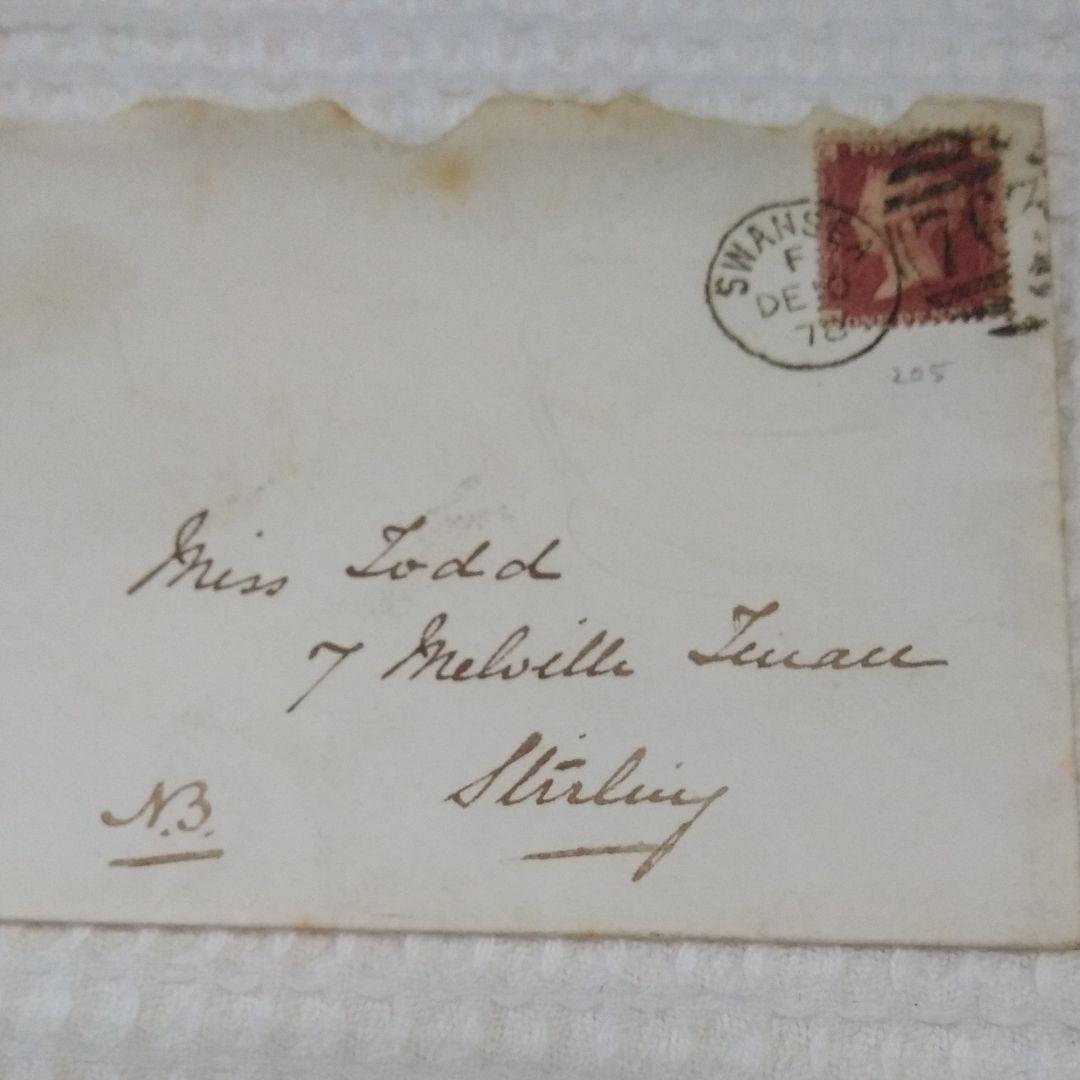 SWANSEA
F
DE 10
78
205
Miss Todd
7 Melville Terrace
Stirling
N.B.